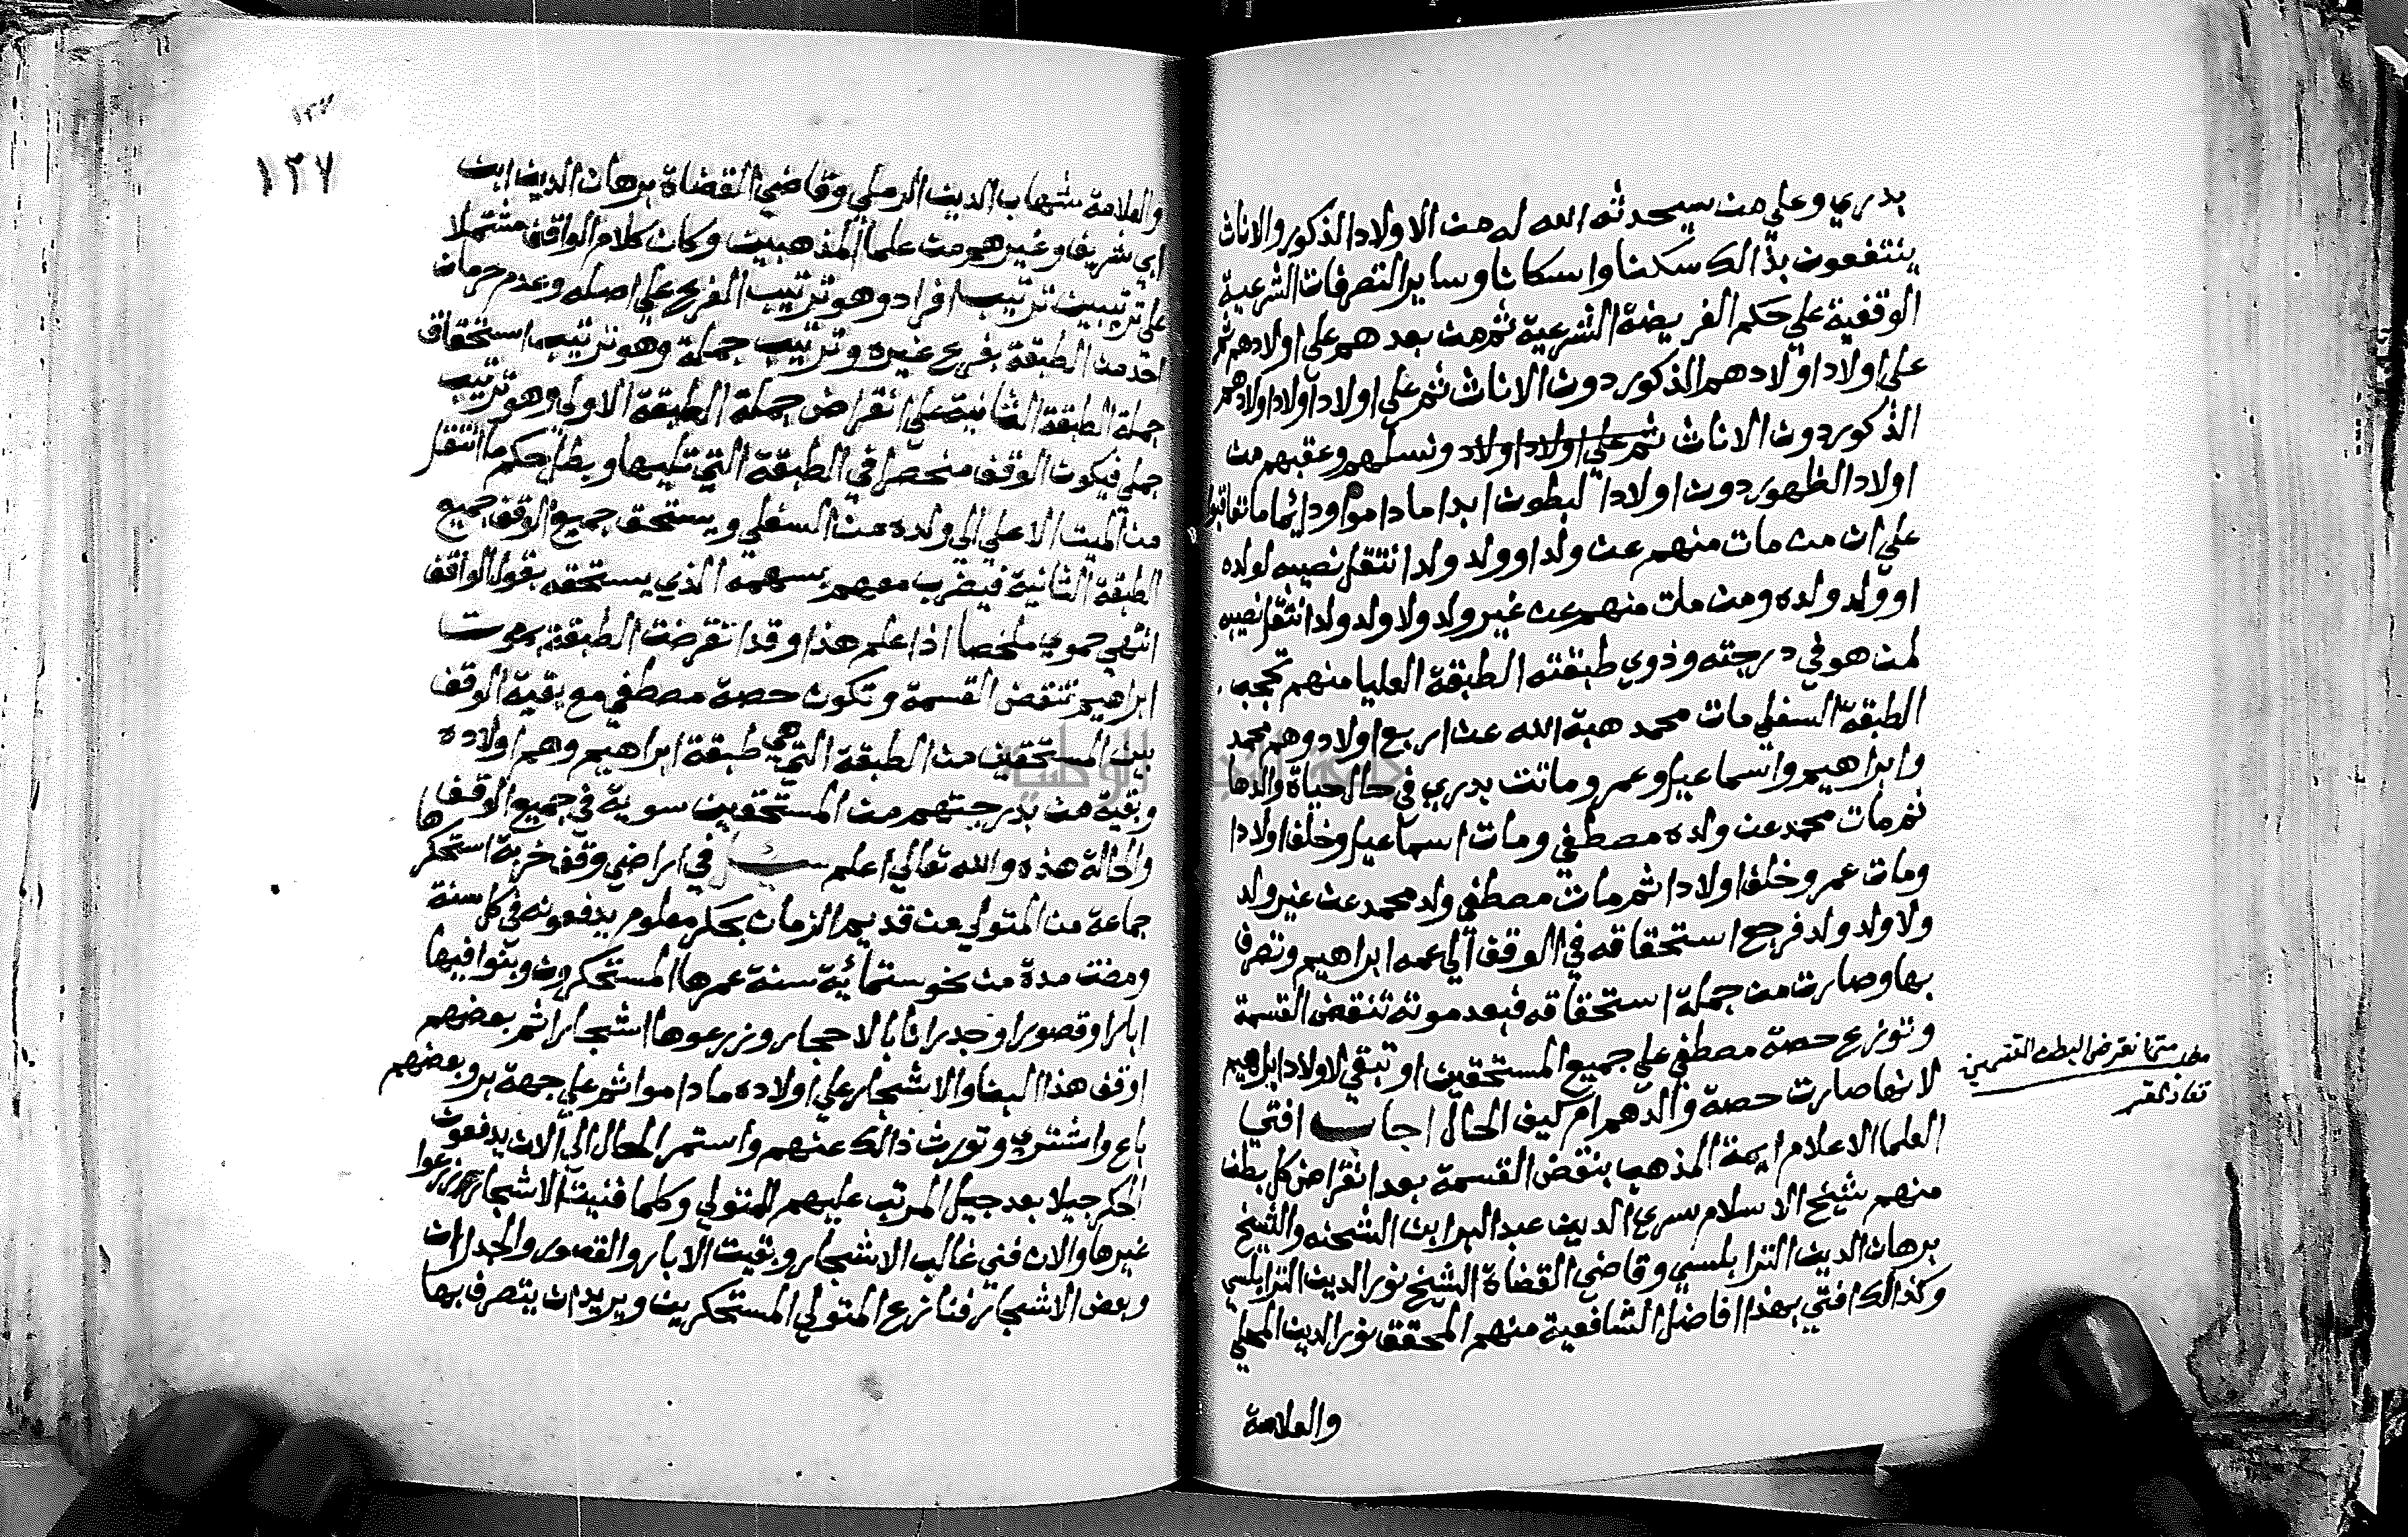 بدري وعلي من سيحدثه الله له من الاولاد الذكور والاناث
ينتفعون بذالك سكنا واسكانا وساير التصرفات الشرعية
الوقفية علي حكم الفريضة الشرعية ثم من بعدهم علي اولادهم ثم
علي اولاد اولادهم الذكور دون الاناث ثم علي اولاد اولاد اولادهم
الذكور دون الاناث ثم علي اولاد اولاد ونسلهم وعقبهم من
اولاد الظهور دون اولاد البطون ابدا ما داموا ودائما ما تعاقبوا
علي ان من مات منهم عن ولد او ولد ولد انتقل نصيبه لولده
او ولد ولده ومن مات منهم عن غير ولد ولا ولد ولد انتقل نصيبه
لمن هو في درجته وذوي طبقته الطبقة العليا منهم تحجب
الطبقة السفلي مات محمد هبة الله عن اربع اولاد وهم محمد
وابراهيم واسماعيل وعمر وماتت بدري في حال حياة والدها
ثم مات محمد عن ولده مصطفي ومات اسماعيل وخلف اولادا
ومات عمر وخلف اولادا ثم مات مصطفي ولد محمد عن غير ولد
ولا ولد ولد فرجع استحقاقه في الوقف الي عمه ابراهيم وتصرف
بها وصارت من جملة استحقاقه فبعد موته تنتقض القسمة
وتوزع حصة مصطفي علي جميع المستحقين او تبقي لاولاد ابراهيم
لانها صارت حصة والدهم ام كيف الحال اجاب افتي
العلما الاعلام ايمة المذهب بنقض القسمة بعد انقراض كل بطن
منهم شيخ الاسلام سري الدين عبد البر ابن الشحنه والشيخ
برهان الدين الترابلسي وقاضي القضاة الشيخ نور الدين الترابلسي
وكذالك افتي بهذا افاضل الشافعية منهم المحقق نور الدين المحلي
والعلامة
متي انقرض البطن
١٢٧
والعلامة شهاب الدين الرملي وقاضي القضاة برهان الدين ابن
ابي شريف وغيرهم من علما المذهبين وكان كلام الواقف مشتملا
علي ترتيبين ترتيب افراد وهو ترتيب الفرع علي اصله وعدم حرمان
احد من الطبقة بفرع غيره وترتيب جملة وهو ترتيب استحقاق
جملة الطبقة الثانية علي انقراض جملة الطبقة الاولي وهو ترتيب
جملي فيكون الوقف منحصرا في الطبقة التي تليها ويبطل حكم ما انتقل
من الميت الاعلي الي ولده من السفلي ويستحق جميع الوقف جميع
الطبقة الثانية فيضرب معهم بسهمه الذي يستحقه بقول الواقف
انتهي حموي ملخصا اذا علم هذا وقد انقرضت الطبقة بموت
ابراهيم تنتقض القسمة وتكون حصة مصطفي مع بقية الوقف
بين المستحقين من الطبقة التي هي طبقة ابراهيم وهم اولاده
وبقية من بدرجتهم من المستحقين سوية في جميع الوقف
والحالة هذه والله تعالي اعلم سئل في اراضي وقف خربة استحكرها
جماعة من المتولي من قديم الزمان بحكر معلوم يدفعونه في كل سنة
ومضت مدة من نحو ستمائية سنة عمرها المستحكرون وبنوا فيها
ابارا وقصورا وجدرانا بالاحجار وزرعوها اشجارا ثم بعضهم
اوقف هذا البنا والاشجار علي اولاده ما داموا ثم علي جهة بر وبعضهم
باع واشتري وتورث ذالك عنهم واستمر الحال الي الان يدفعون
الحكر جيلا بعد جيل المرتب عليهم للمتولي وكلما فنيت الاشجار زرعوا
غيرها والان فني غالب الاشجار وبقيت الابار والقصور والجدران
وبعض الاشجار فنازع المتولي المستحكرين ويريد ان يتصرف بها